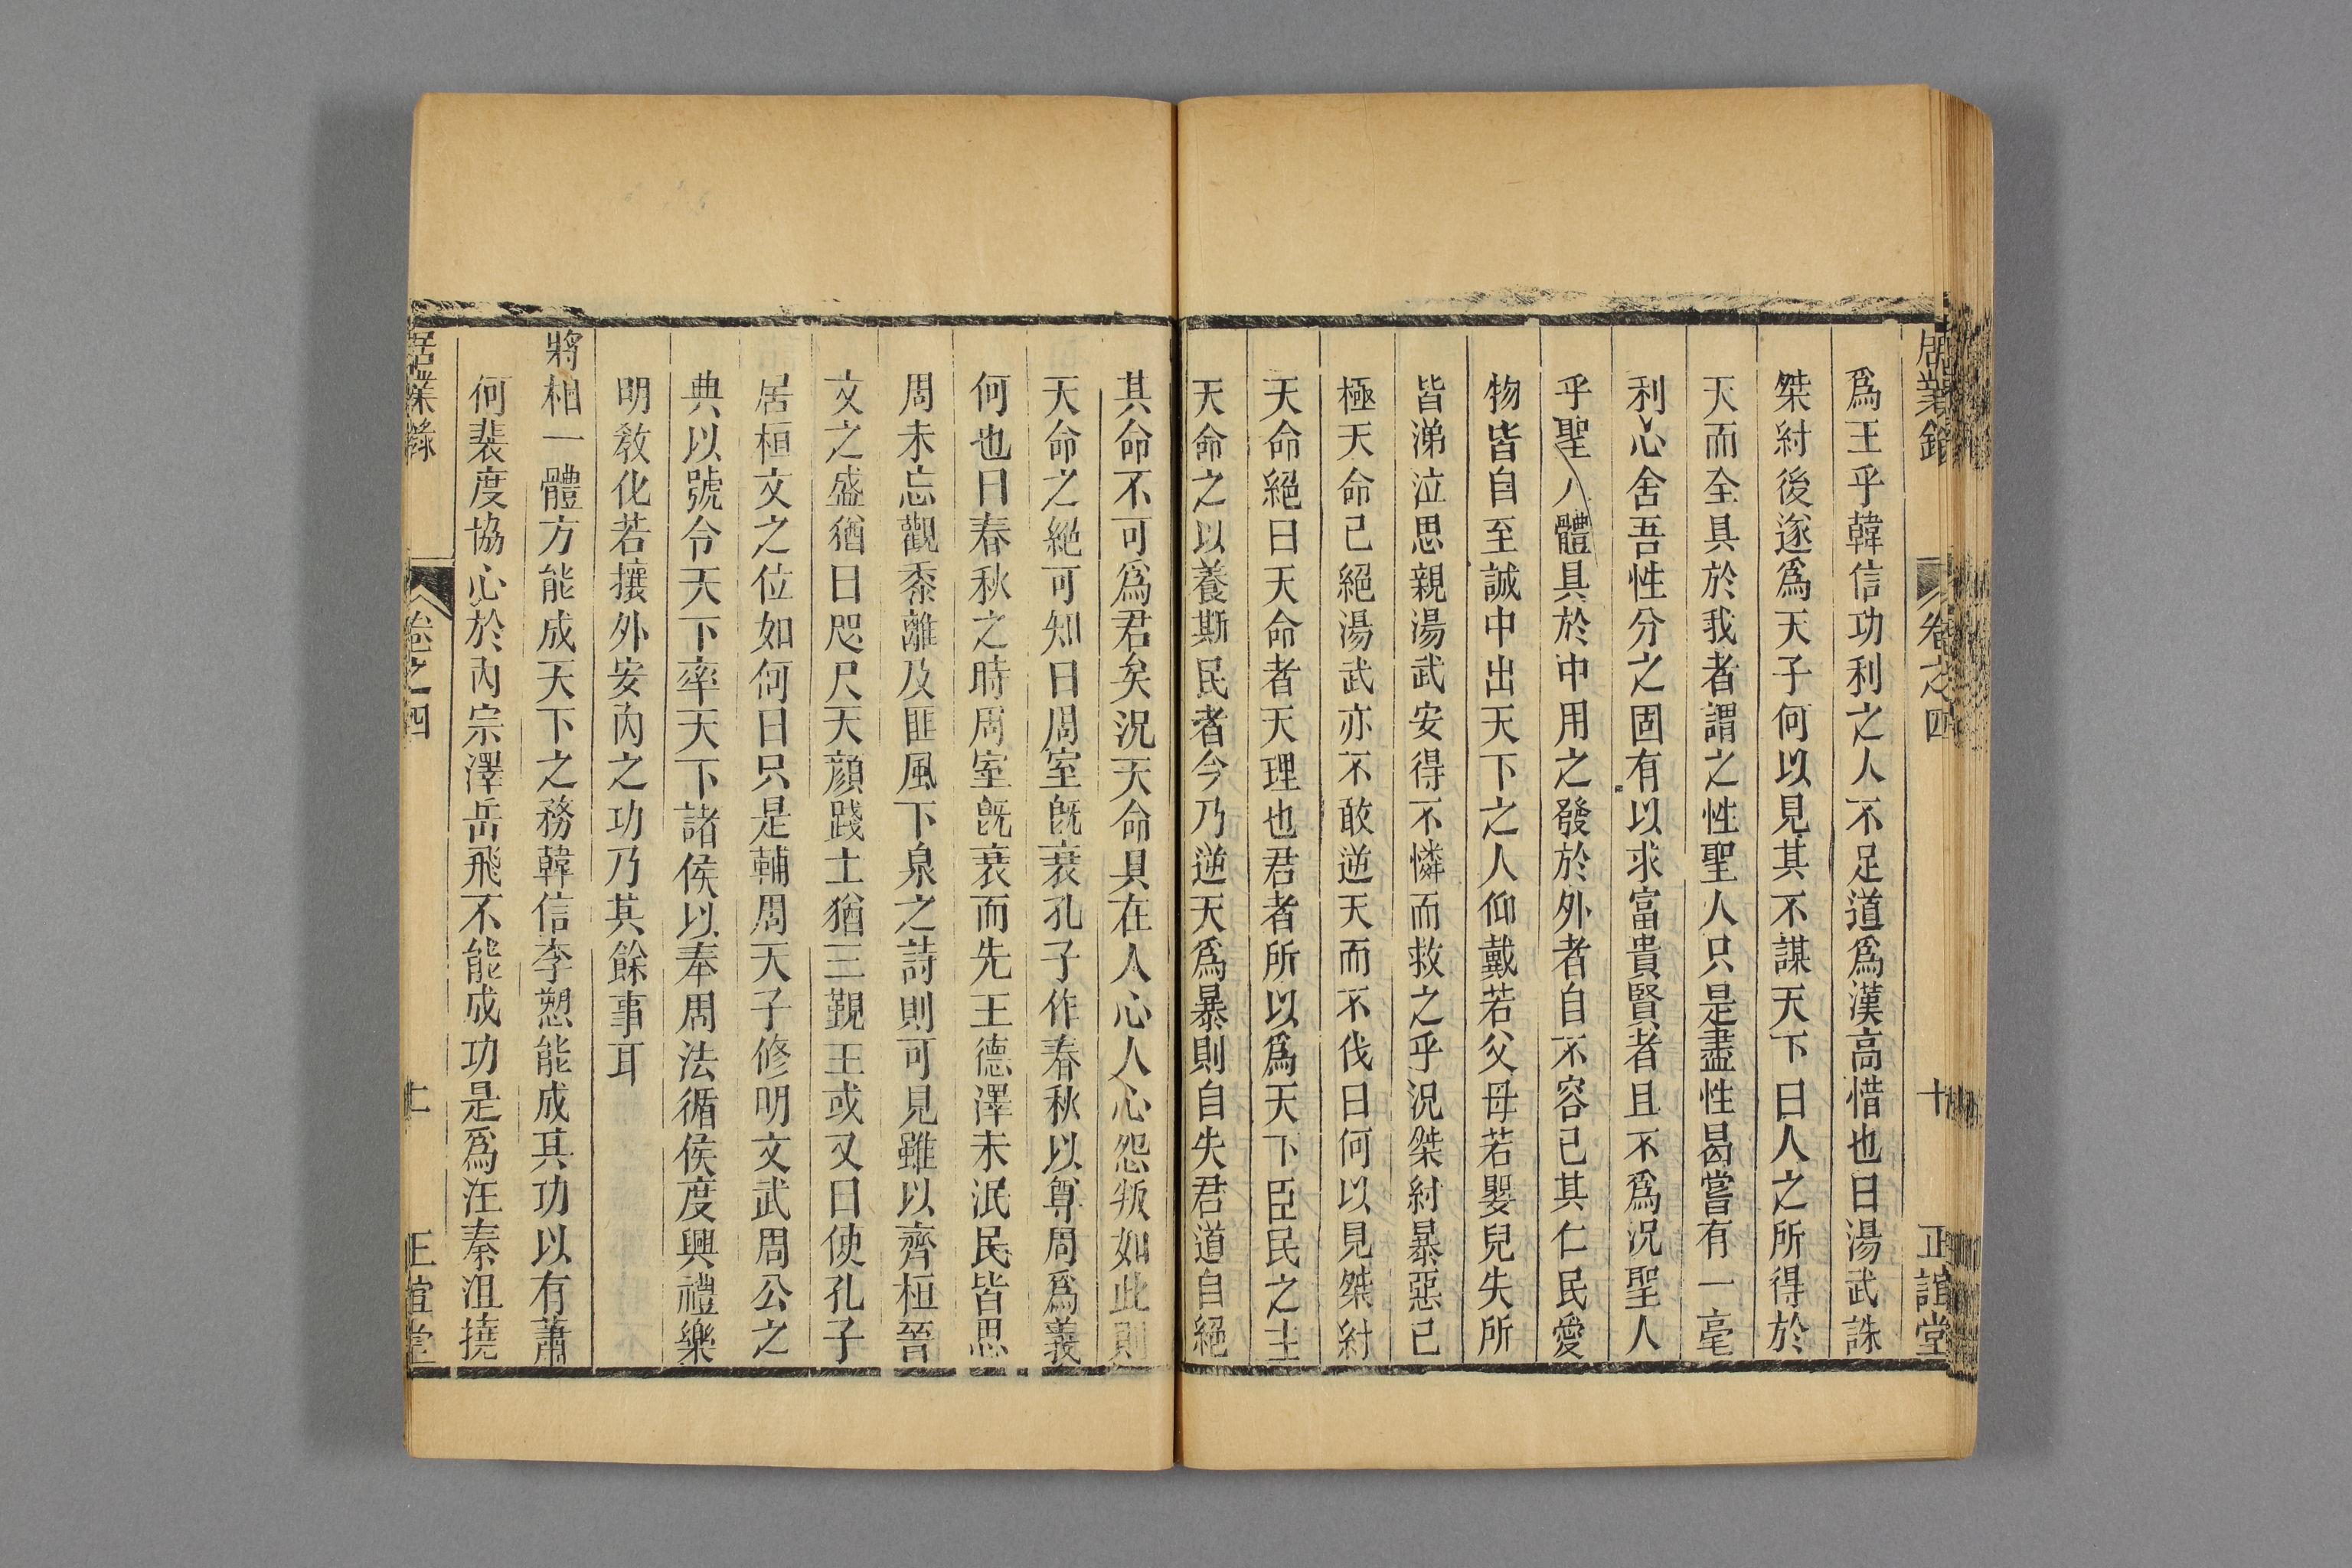 居業錄 卷之四 十 正誼堂
爲王乎韓信功利之人不足道爲漢高惜也曰湯武誅
桀紂後遂爲天子何以見其不謀天下曰人之所得於
天而全具於我者謂之性聖人只是盡性曷嘗有一毫
利心舍吾性分之固有以求富貴賢者且不爲況聖人
乎聖人體具於中用之發於外者自不容已其仁民愛
物皆自至誠中出天下之人仰戴若父母若嬰兒失所
皆涕泣思親湯武安得不憐而救之乎況桀紂暴惡已
極天命已絕湯武亦不敢逆天而不伐曰何以見桀紂
天命絕曰天命者天理也君者所以爲天下臣民之主
天命之以養斯民者今乃逆天爲暴則自失君道自絕
其命不可爲君矣況天命具在人心人心怨叛如此則
天命之絕可知曰周室旣衰孔子作春秋以尊周爲義
何也曰春秋之時周室旣衰而先王德澤未泯民皆思
周未忘觀黍離及匪風下泉之詩則可見雖以齊桓晉
文之盛猶曰咫尺天顏踐土猶三覲王或又曰使孔子
居桓文之位如何曰只是輔周天子修明文武周公之
典以號令天下率天下諸侯以奉周法循侯度興禮樂
明敎化若攘外安內之功乃其餘事耳
將相一體方能成天下之務韓信李愬能成其功以有蕭
何裴度協心於內宗澤岳飛不能成功是爲汪秦沮撓
居業錄 卷之四 十一 正誼堂